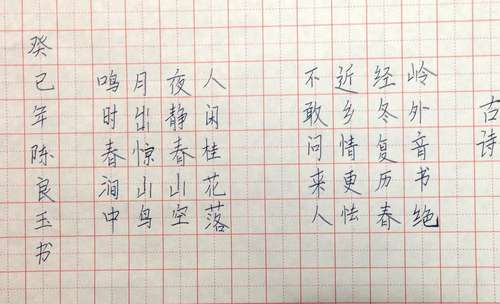 古诗
岭外音书绝
经冬复历春
近乡情更怯
不敢问来人
人闲桂花落
夜静春山空
月出惊山鸟
鸣时春涧中
癸巳年陈良玉书